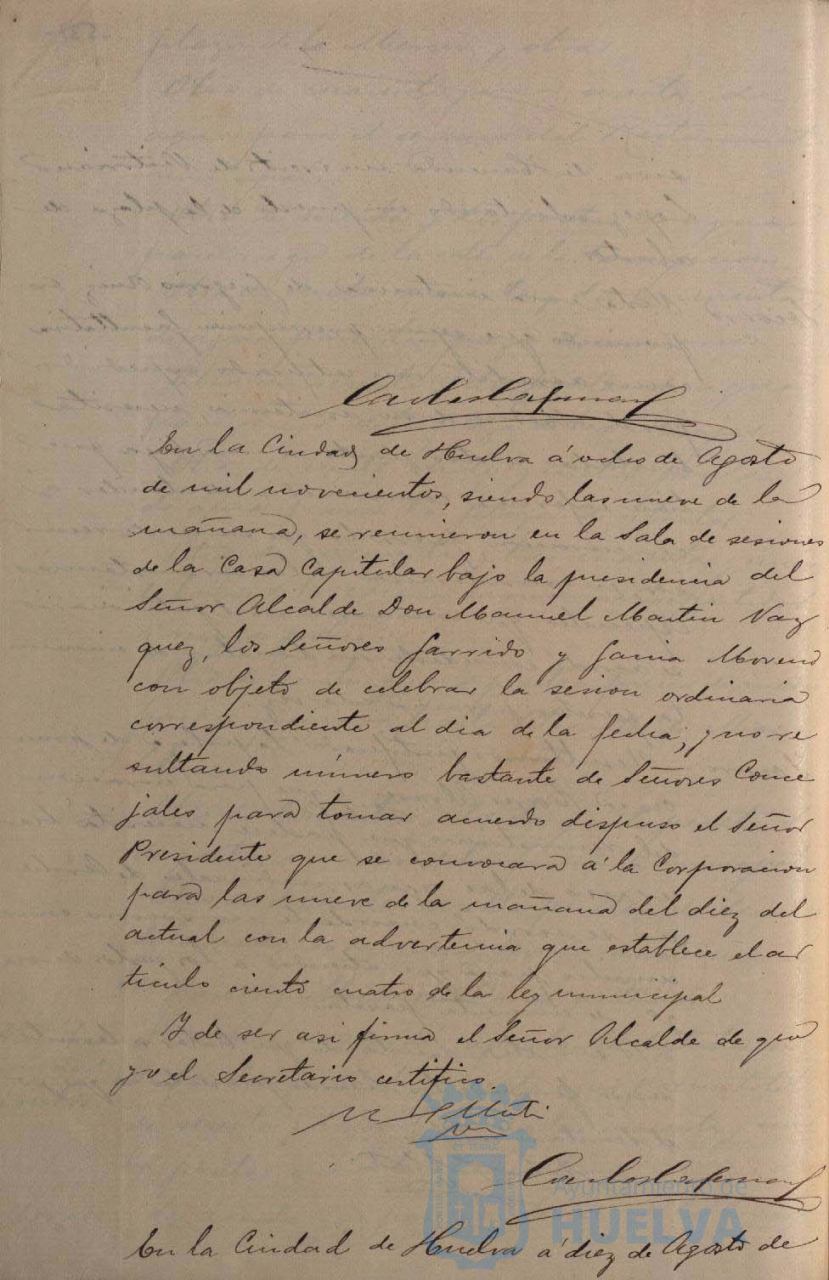 En la Ciudad de Huelva á ocho de Agosto
de mil novecientos, siendo las nueve de la
mañana, se reunieron en la Sala de sesiones
de la Casa Capitular bajo la presidencia del
Señor Alcalde Don Manuel Martin Vaz
quez, los Señores Garrido y Garcia Moreno
con objeto de celebrar la sesion ordinaria
correspondiente al dia de la fecha, y no re
sultando número bastante de Señores Conce
jales para tomar acuerdo dispuso el Señor
Presidente que se convocara á la Corporacion
para las nueve de la mañana del diez del
actual con la advertencia que establece el ar
ticulo ciento cuatro de la ley municipal
Y de ser asi firma el Señor Alcalde de que
yo el Secretario certifico.
Ayuntamiento de
HUELVA
En la Ciudad de Huelva á diez de Agosto de